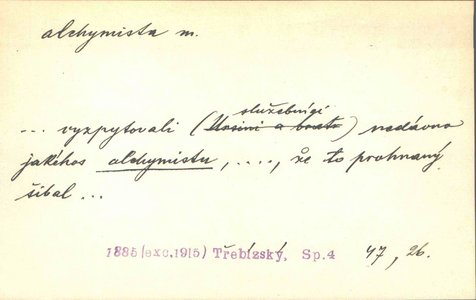 alchymista m.
služebníci
... vyzpytovali (Ursini a bratr) nedávno
jakéhos alchymistu, ...., že to prohnaný
šibal ...
1885 (exc. 1915) Třebízský, Sp. 4 47, 26.